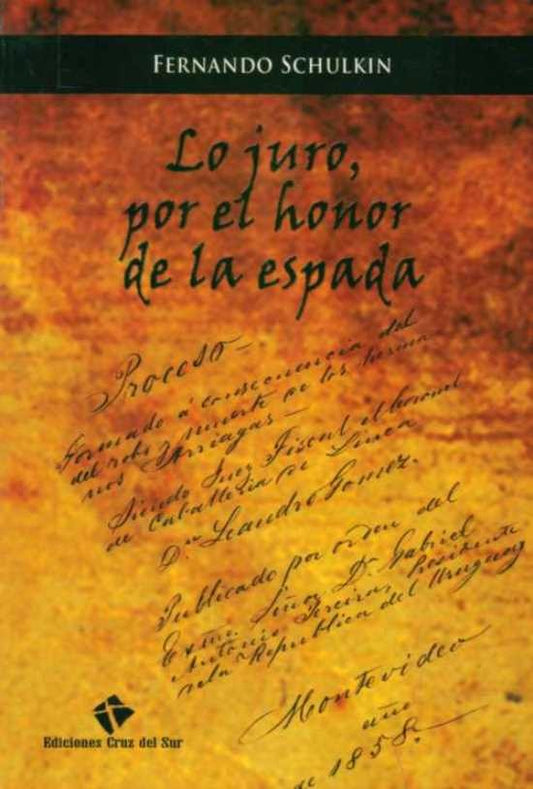 FERNANDO SCHULKIN
Lo juro,
por el honor
de la espada
Proceso
Formado á consecuencia del
del robo y muerte de los herma
nos Yarriagas
Siendo Juez Fiscal el Coronel
de Caballeria de Linea
Dn Leandro Gomez.
Publicado por orden del
Exmo. Señor Dn. Gabriel
Antonio Pereira, Presidente
de la Republica del Uruguay
Montevideo
año
de 1858.
Ediciones Cruz del Sur